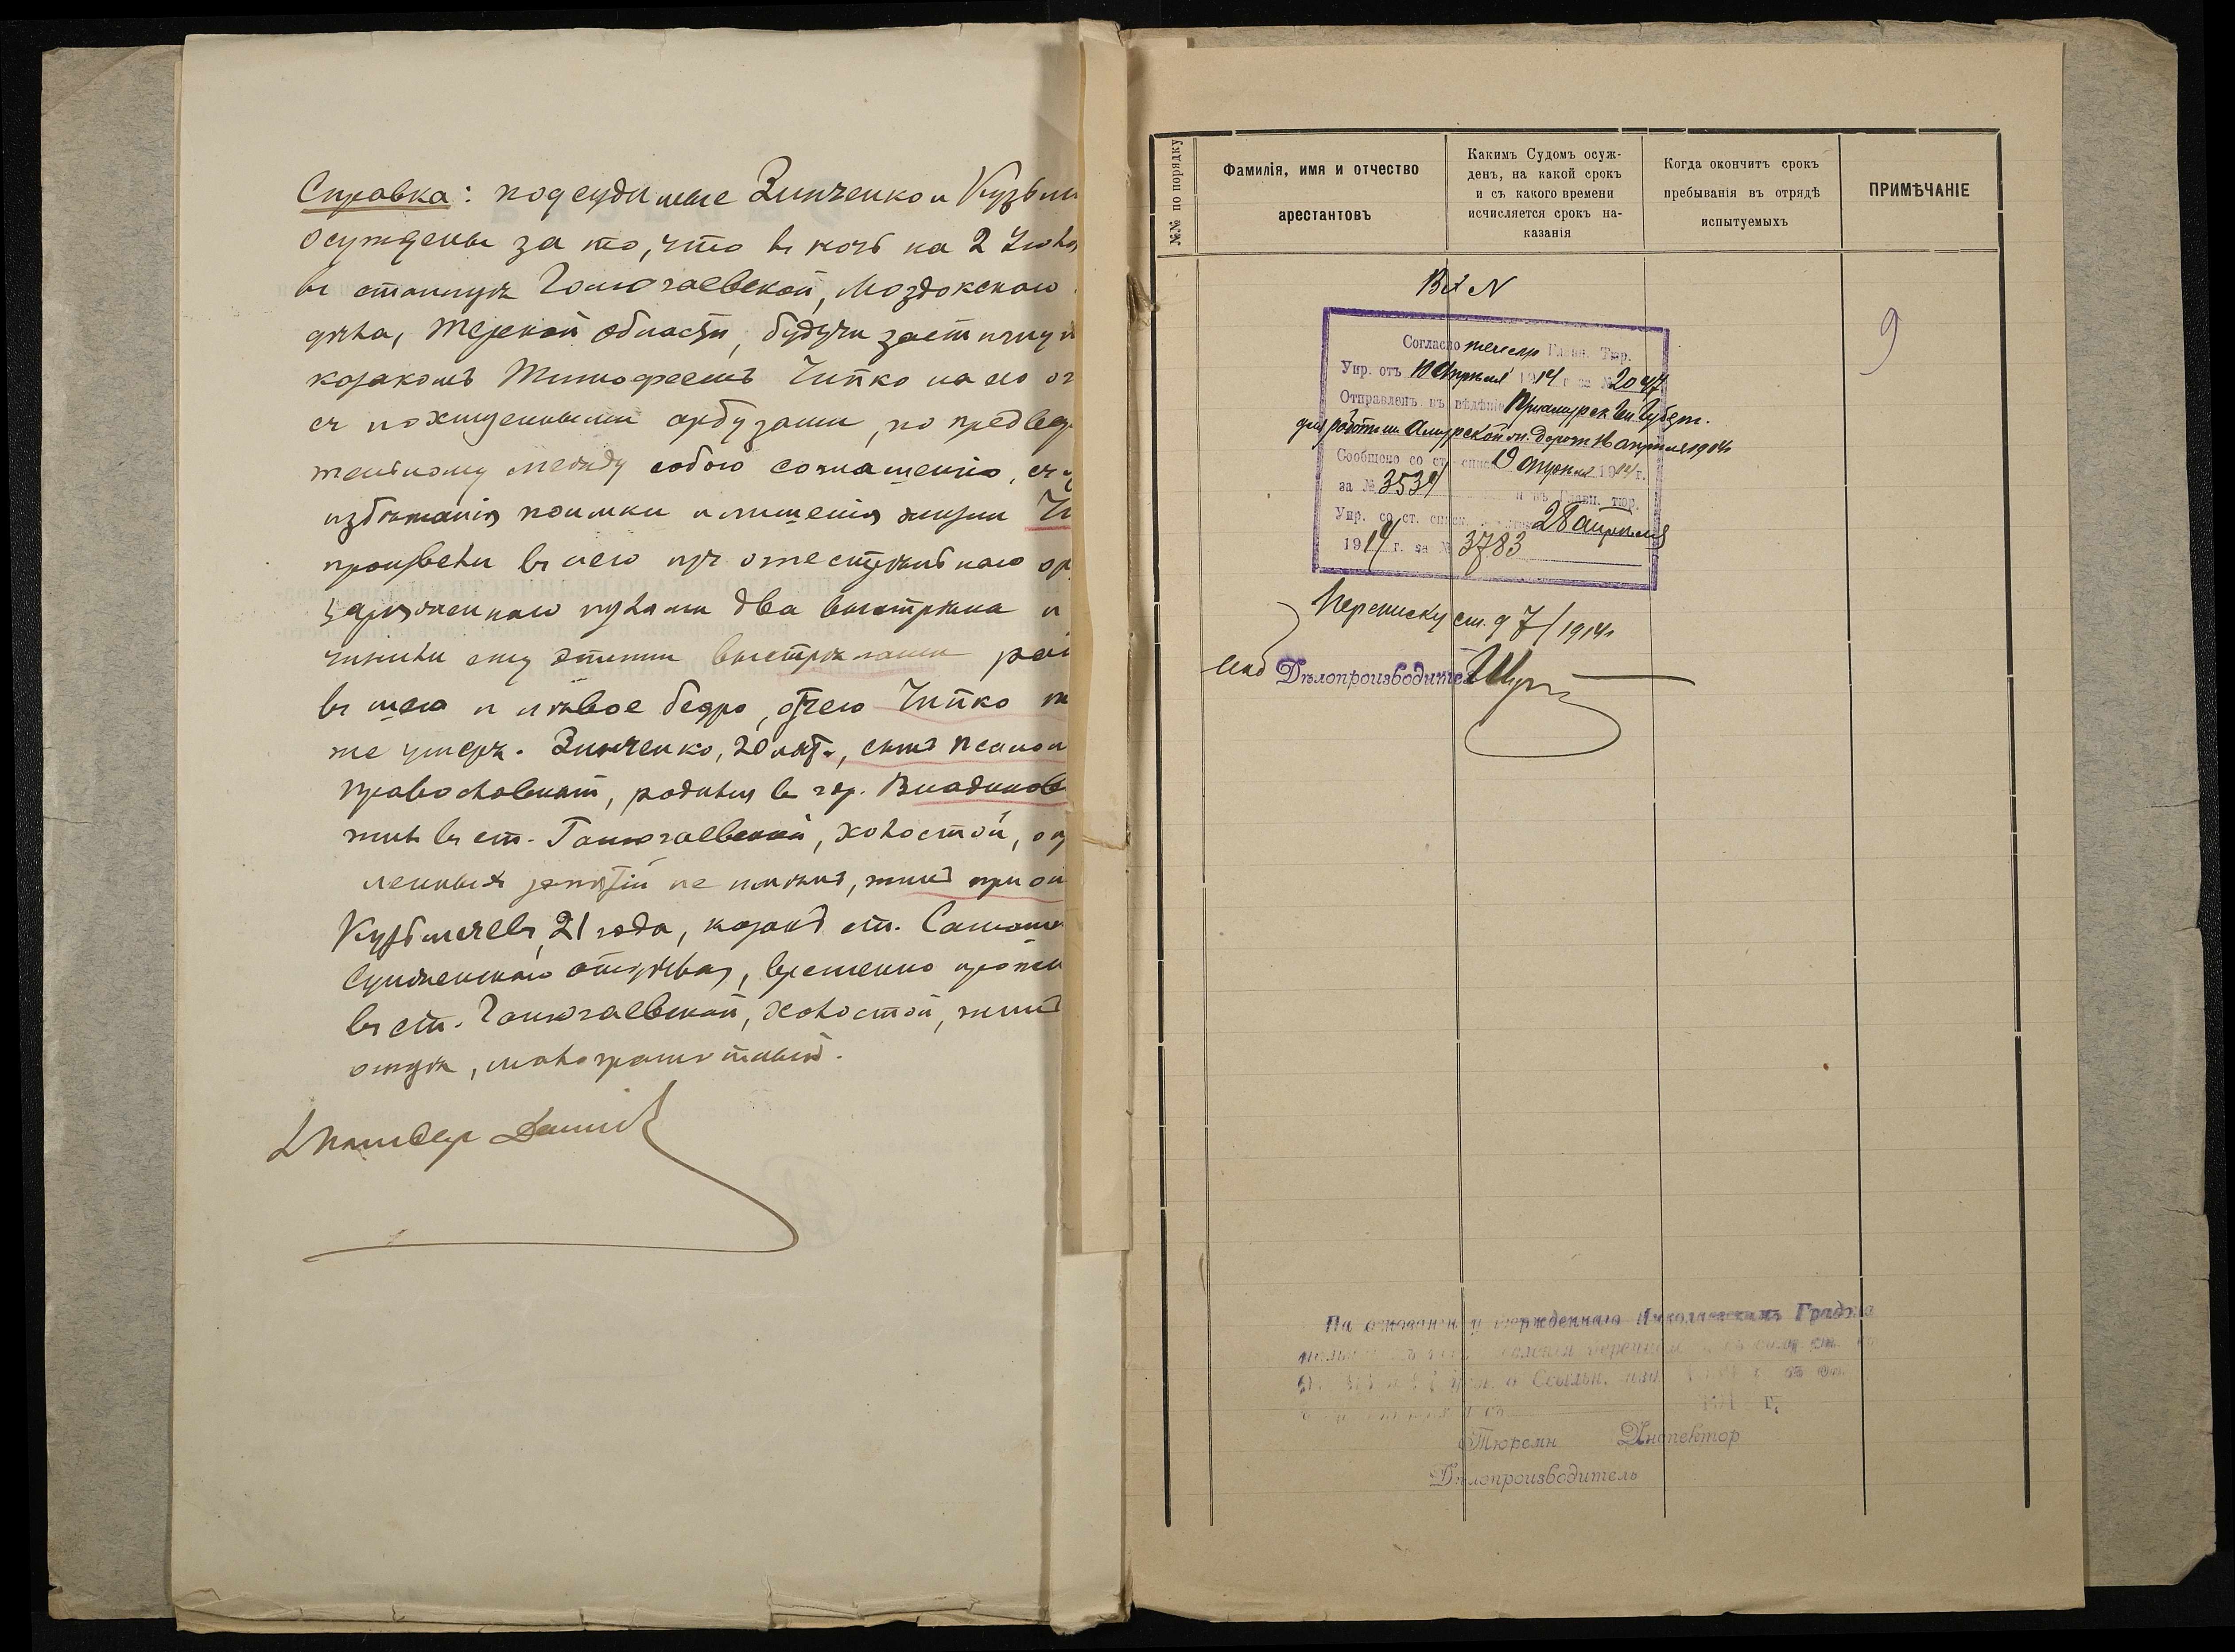 Справка: подсудимые Зинченко и Кузьми
осуждены за то, что въ ночь на 2 Іюля
въ станицѣ Галюгаевской, Моздокскаго
дѣла, Терской области, будучи застигну
казакомъ Тимофеемъ Чипко на его ог
съ похищенными арбузами, по предвар
тельному между собою соглашенію, съ ц
избѣжанія поимки и лишенія жизни Чи
произвели въ него изъ огнестрѣльнаго ор
заряженнаго пулями два выстрѣла и
чинили ему этими выстрѣлами ран
въ шею и лѣвое бедро, отчего Чипко т
же умеръ. Зинченко, 20 лѣт., сынъ псалом
православный, родился въ гор. Владикав
жилъ въ ст. Галюгаевской, холостой, оп
ленныхъ занятій не имѣлъ, жилъ при от
Кузьмичевъ, 21 года, казакъ ст. Самашк
Сунженскаго отдѣла, временно прожи
въ ст. Галюгаевской, холостой, жилъ
отца, малограмотный.
№№ по порядку
Фамилія, имя и отчество
арестантовъ
Какимъ Судомъ осуж-
денъ, на какой срокъ
и съ какого времени
исчисляется срокъ на-
казанія
Когда окончитъ срокъ
пребыванія въ отрядѣ
испытуемыхъ
ПРИМѢЧАНІЕ
9
Согласно телегр Главн. Тюр.
Упр. отъ 10 Апрѣля 1914 г. за № 2047
Отправленъ въ вѣдѣніе Приамурск Ген Губерн.
для работъ на Амурской ж. дорогѣ 16 апрѣля 1914
Сообщено со ст. спис. 19 апрѣля 1914 г.
за № 3534 и въ Главн. тюр.
Упр. со ст. списк. 28 апрѣля
1914 г. за № 3783
Переписку см. 97/1914
Дѣлопроизводитель
На основаніи утвержденнаго
о Ссыльн.
191 г.
Тюремн Инспектор
Дѣлопроизводитель